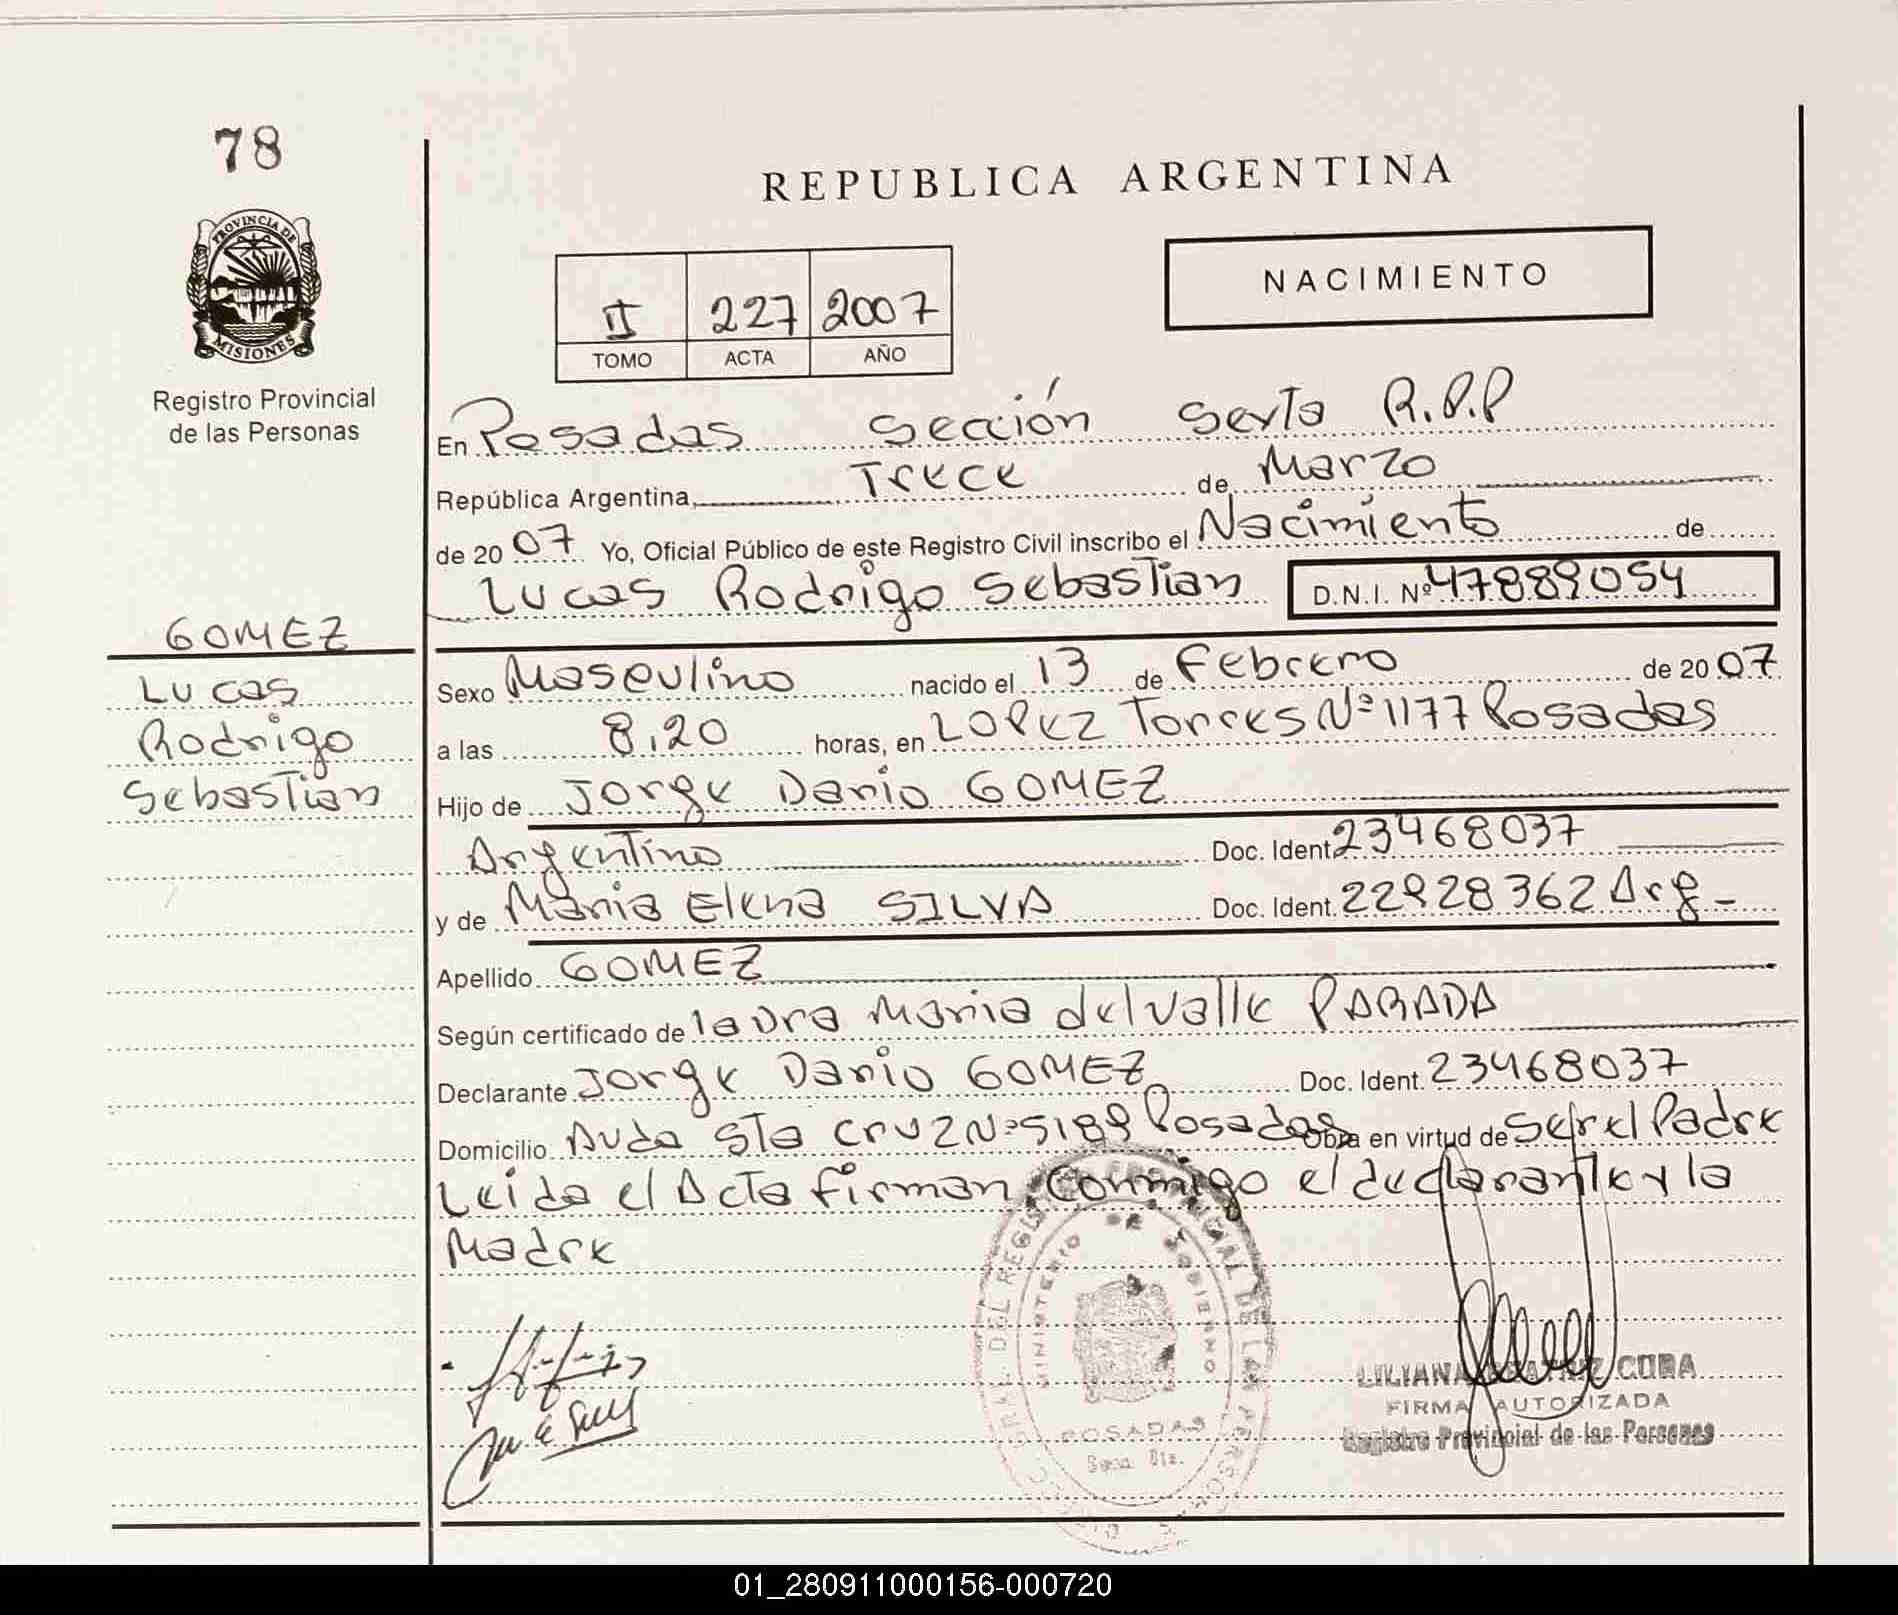 78
PROVINCIA DE
MISIONES
Registro Provincial
de las Personas
REPUBLICA ARGENTINA
NACIMIENTO
II 227 2007
TOMO ACTA AÑO
En Posadas Sección Sexta R.P.P
República Argentina, Trece de Marzo
de 2007 Yo, Oficial Público de este Registro Civil inscribo el Nacimiento de
Lucas Rodrigo Sebastian D.N.I. Nº 47889054
GOMEZ
Lucas
Rodrigo
Sebastian
Sexo Masculino nacido el 13 de Febrero de 2007
a las 8,20 horas, en Lopez Torres Nº 1177 Posadas
Hijo de Jorge Dario GOMEZ
Argentino Doc. Ident. 23468037
y de Maria Elena SILVA Doc. Ident. 22828362 Arg-
Apellido GOMEZ
Según certificado de laura Maria del Valle PARADA
Declarante Jorge Dario GOMEZ Doc. Ident. 23468037
Domicilio Avda Sta Cruz Nº 5189 Posadas Obra en virtud de Ser el Padre
Leida el Acta firman conmigo el declarante y la
Madre
MINISTERIO DE GOBIERNO
POSADAS
LILIANA BEATRIZ CUBA
FIRMA AUTORIZADA
Registro Provincial de las Personas
01_280911000156-000720